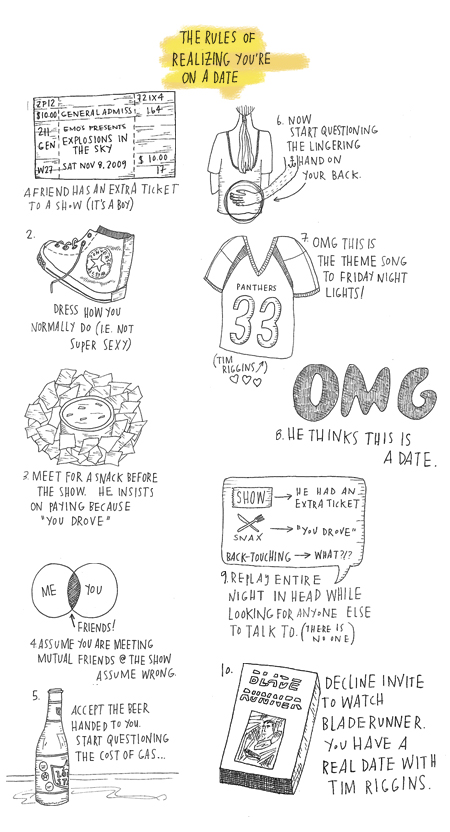 THE RULES OF
REALIZING YOU'RE
ON A DATE
1
ZP12
321X4
$10.00
GENERAL ADMISS.
164
ZH
GEN
GMO'S PRESENTS
EXPLOSIONS IN
THE SKY
W27
SAT NOV 8, 2009
$10.00
17
A FRIEND HAS AN EXTRA TICKET
TO A SHOW (IT'S A BOY)
2.
DRESS HOW YOU
NORMALLY DO (I.E. NOT
SUPER SEXY)
3. MEET FOR A SNACK BEFORE
THE SHOW. HE INSISTS
ON PAYING BECAUSE
"YOU DROVE"
ME
YOU
FRIENDS!
4. ASSUME YOU ARE MEETING
MUTUAL FRIENDS @ THE SHOW
ASSUME WRONG.
5.
ACCEPT THE BEER
HANDED TO YOU.
START QUESTIONING
THE COST OF GAS...
6. NOW
START QUESTIONING
THE LINGERING
HAND ON
YOUR BACK.
7. OMG THIS IS
THE THEME SONG
TO FRIDAY NIGHT
LIGHTS!
PANTHERS
33
(TIM
RIGGINS)
OMG
8. HE THINKS THIS IS
A DATE.
SHOW
HE HAD AN
EXTRA TICKET
SNAX
"YOU DROVE"
BACK-TOUCHING
WHAT?!?
9. REPLAY ENTIRE
NIGHT IN HEAD WHILE
LOOKING FOR ANYONE ELSE
TO TALK TO. (THERE IS
NO ONE)
10.
BLADE
RUNNER
DECLINE INVITE
TO WATCH
BLADERUNNER.
YOU HAVE A
REAL DATE WITH
TIM RIGGINS.